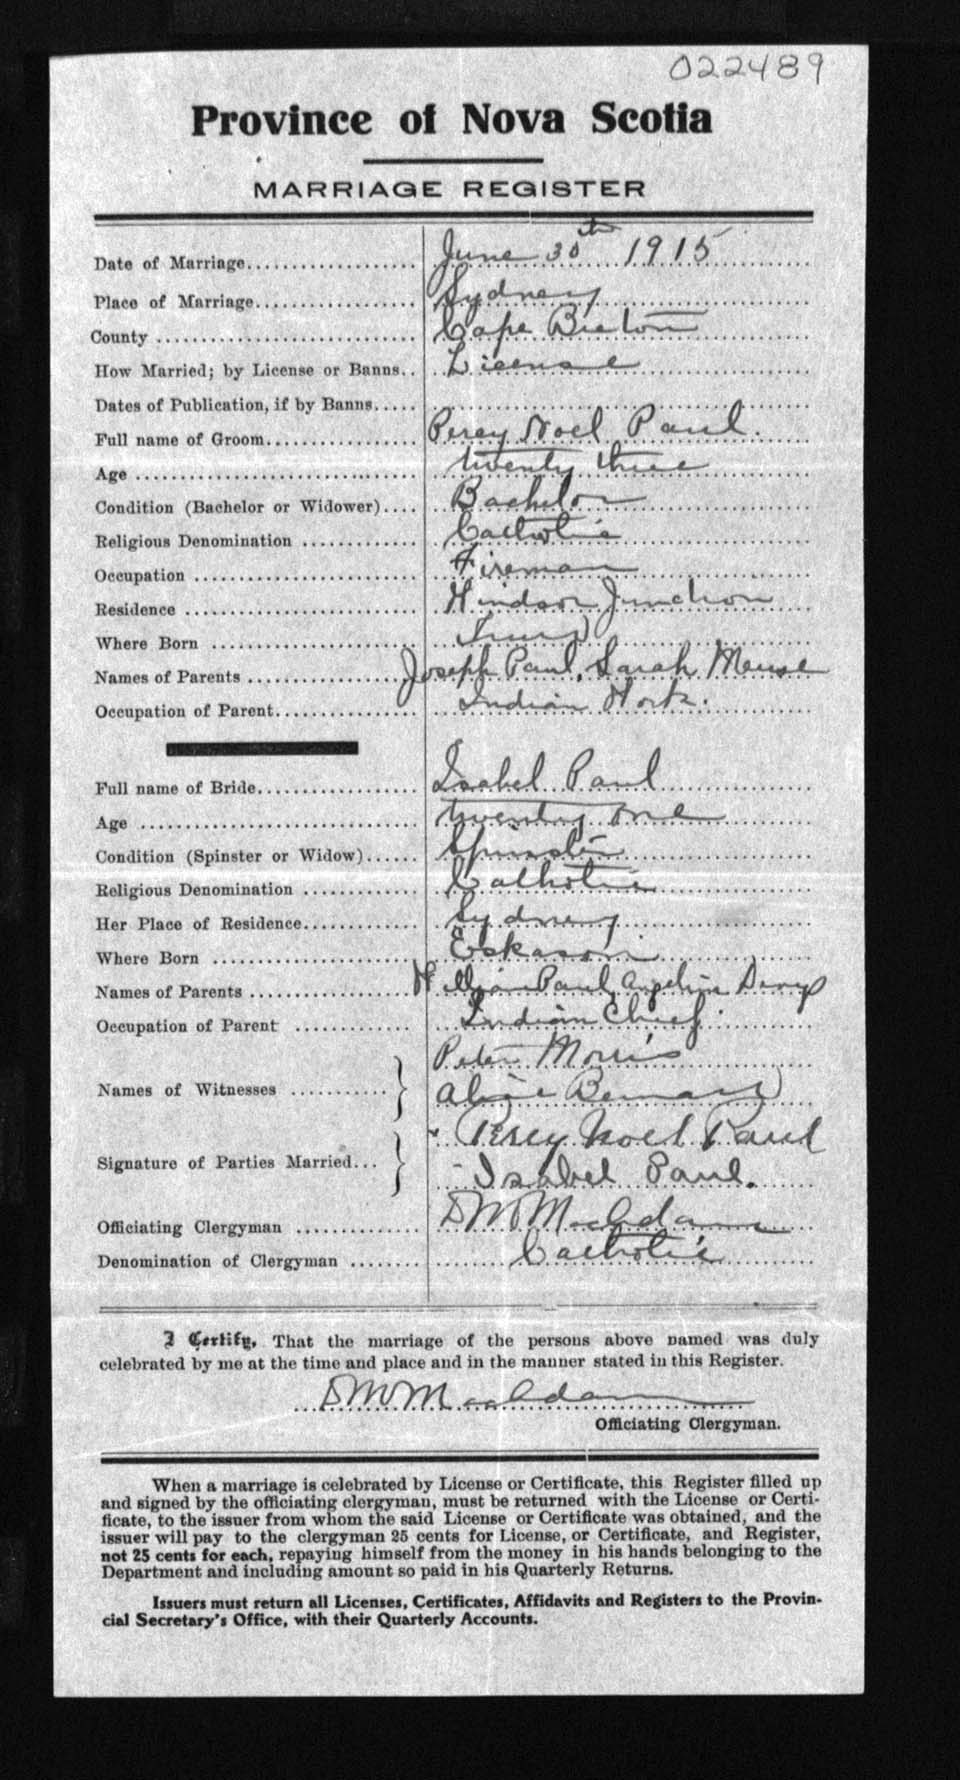 022489
Province of Nova Scotia
MARRIAGE REGISTER
Date of Marriage.................... June 30th 1915
Place of Marriage.................. Sydney
County ............................. Cape Breton
How Married; by License or Banns.. License
Dates of Publication, if by Banns.....
Full name of Groom................. Percy Noel Paul.
Age ................................ twenty three
Condition (Bachelor or Widower).... Bachelor
Religious Denomination ............. Catholic
Occupation ......................... Fireman
Residence .......................... Windsor Junction
Where Born ........................ Truro
Names of Parents .................. Joseph Paul, Sarah Meuse
Occupation of Parent................ Indian Work.
Full name of Bride.................. Isabel Paul
Age ................................ twenty one
Condition (Spinster or Widow)...... Spinster
Religious Denomination ............. Catholic
Her Place of Residence.............. Sydney
Where Born ........................ Eskasoni
Names of Parents .................. William Paul, Angelin Denys
Occupation of Parent .............. Indian Chief.
Peter Morris
Names of Witnesses ............
Bernard
Percy Noel Paul
Signature of Parties Married...
Isabel Paul.
Officiating Clergyman .............. D M MacAdam
Denomination of Clergyman ........ Catholic
I Certify, That the marriage of the persons above named was duly
celebrated by me at the time and place and in the manner stated in this Register.
D M MacAdam
Officiating Clergyman.
When a marriage is celebrated by License or Certificate, this Register filled up
and signed by the officiating clergyman, must be returned with the License or Certi-
ficate, to the issuer from whom the said License or Certificate was obtained, and the
issuer will pay to the clergyman 25 cents for License, or Certificate, and Register,
not 25 cents for each, repaying himself from the money in his hands belonging to the
Department and including amount so paid in his Quarterly Returns.
Issuers must return all Licenses, Certificates, Affidavits and Registers to the Provin-
cial Secretary's Office, with their Quarterly Accounts.